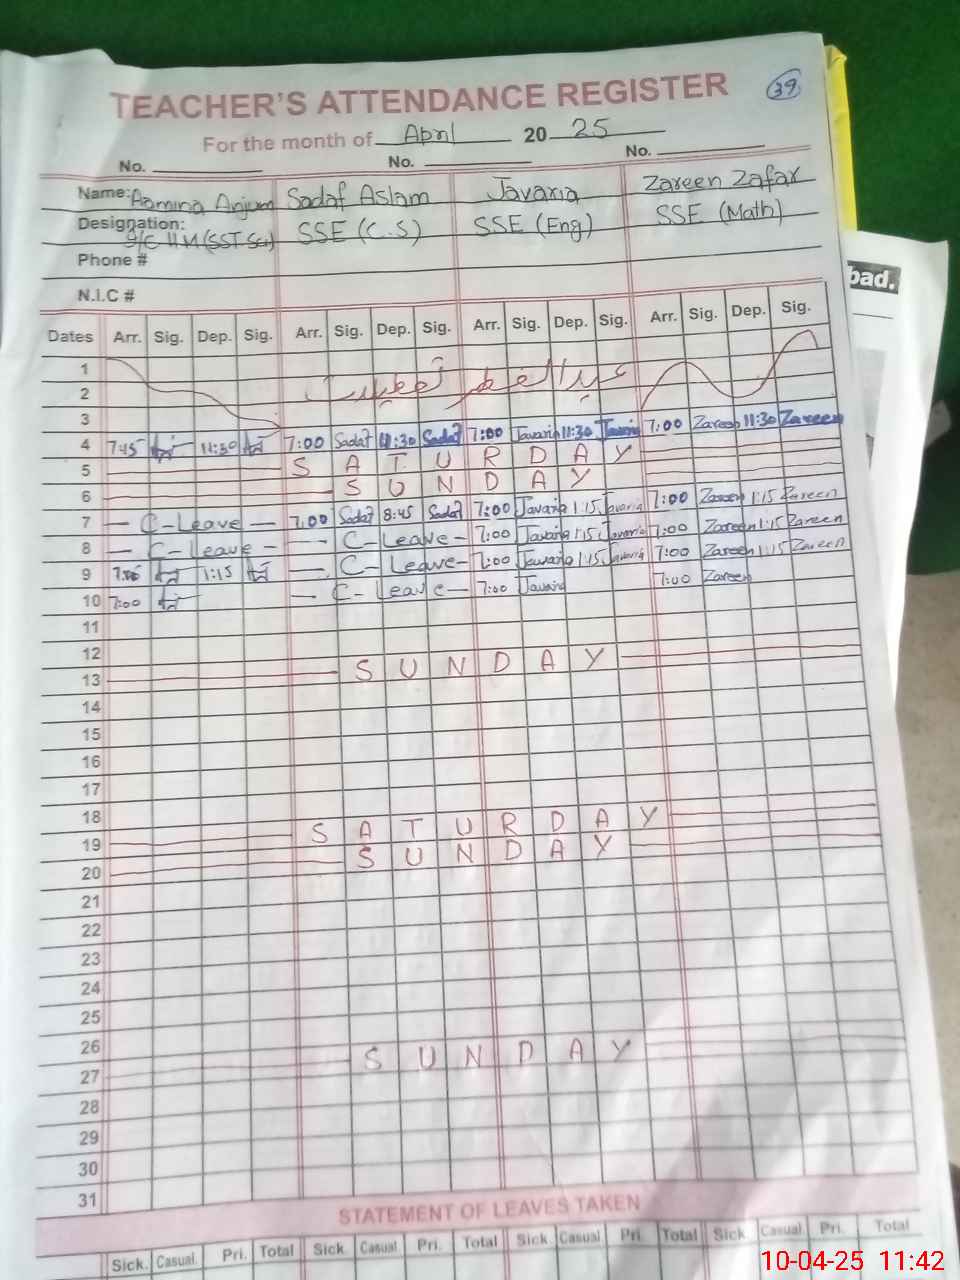 39
TEACHER'S ATTENDANCE REGISTER
For the month of April 2025
No. No. No.
Name: Aamina Anjum Sadaf Aslam Javaria Zareen Zafar
Designation: I/C HM (SST-Sci) SSE (C.S) SSE (Eng) SSE (Math)
Phone #
N.I.C #
Dates Arr. Sig. Dep. Sig. Arr. Sig. Dep. Sig. Arr. Sig. Dep. Sig. Arr. Sig. Dep. Sig.
1
2 عید الفطر تعطیلات
3
4 7:45 11:30 7:00 Sadaf 11:30 Sadaf 7:00 Javaria 11:30 Javaria 7:00 Zareen 11:30 Zareen
5 SATURDAY
6 SUNDAY
7 — C-Leave — 7:00 Sadaf 8:45 Sadaf 7:00 Javaria 1:15 Javaria 7:00 Zareen 1:15 Zareen
8 — C-Leave — — C-Leave — 7:00 Javaria 1:15 Javaria 7:00 Zareen 1:15 Zareen
9 1:15 — C-Leave — 7:00 Javaria 1:15 Javaria 7:00 Zareen 1:15 Zareen
10 7:00 — C-Leave — 7:00 Javaria 7:00 Zareen
11
12
13 SUNDAY
14
15
16
17
18
19 SATURDAY
20 SUNDAY
21
22
23
24
25
26
27 SUNDAY
28
29
30
31
STATEMENT OF LEAVES TAKEN
Sick. Casual. Pri. Total Sick. Casual. Pri. Total Sick. Casual. Pri. Total Sick. Casual. Pri. Total
bad.
10-04-25 11:42